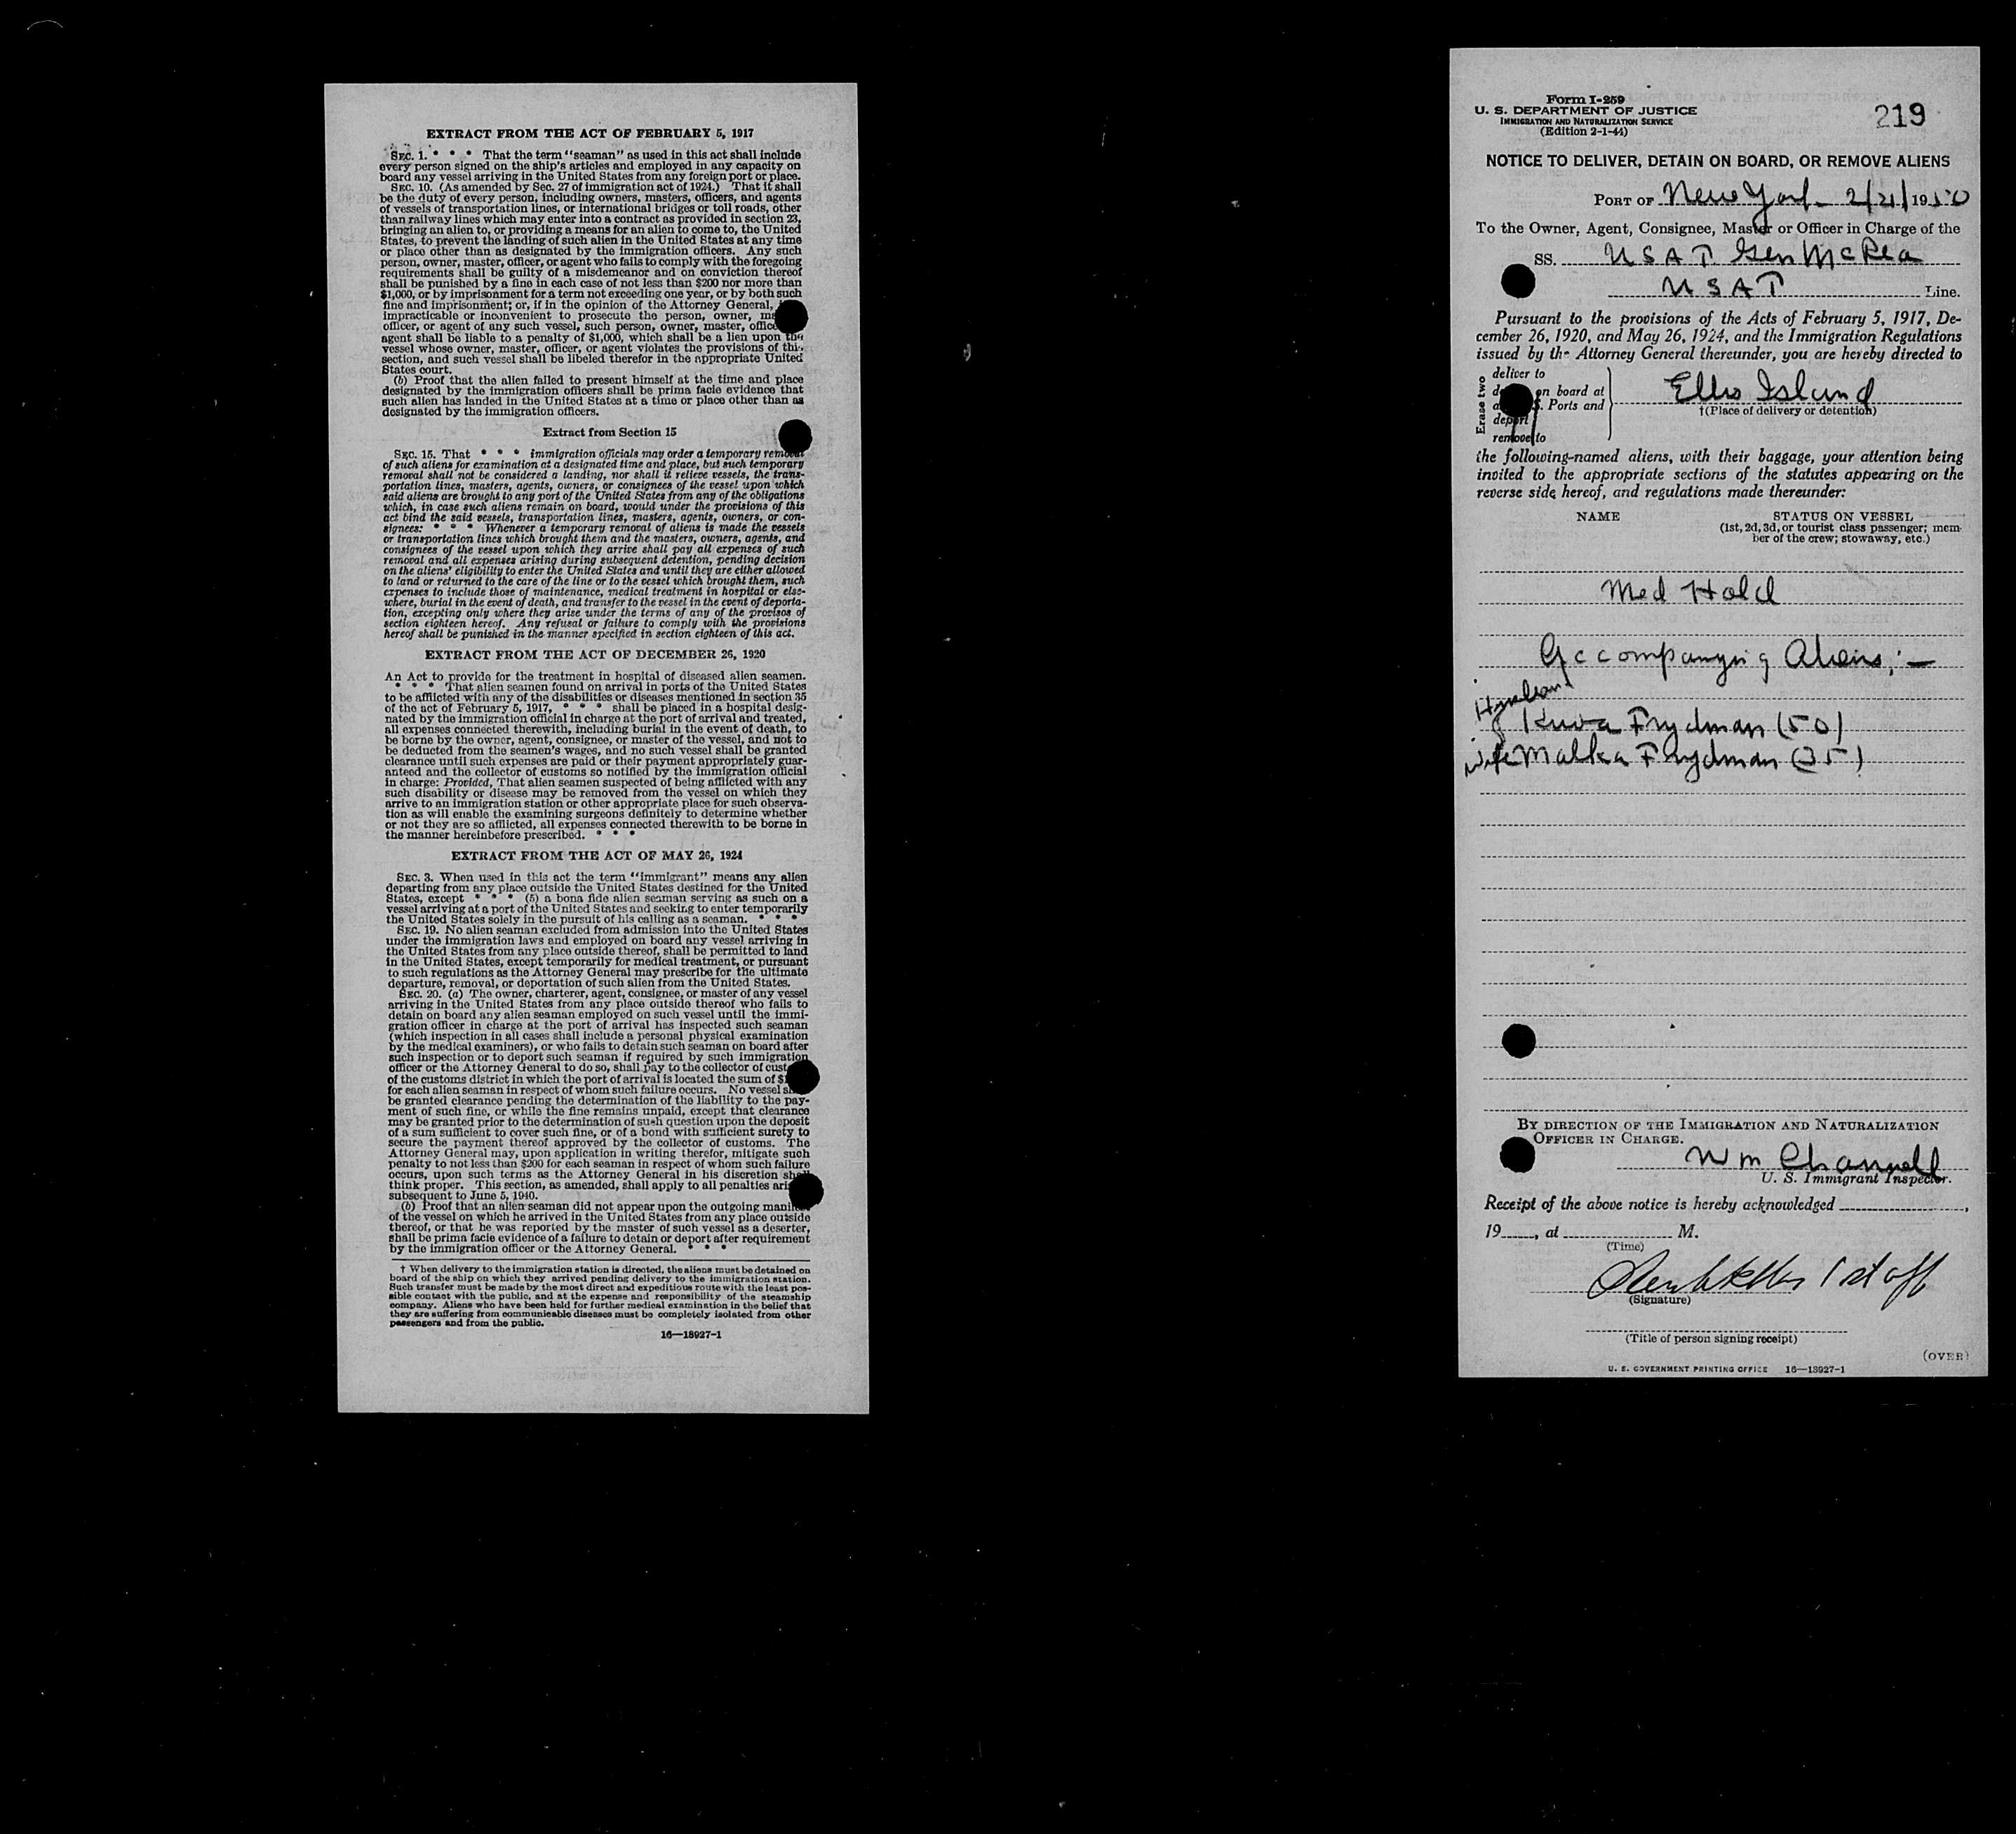 EXTRACT FROM THE ACT OF FEBRUARY 5, 1917
SEC. 1. * * * That the term "seaman" as used in this act shall include
every person signed on the ship's articles and employed in any capacity on
board any vessel arriving in the United States from any foreign port or place.
SEC. 10. (As amended by Sec. 27 of immigration act of 1924.) That it shall
be the duty of every person, including owners, masters, officers, and agents
of vessels of transportation lines, or international bridges or toll roads, other
than railway lines which may enter into a contract as provided in section 23,
bringing an alien to, or providing a means for an alien to come to, the United
States, to prevent the landing of such alien in the United States at any time
or place other than as designated by the immigration officers. Any such
person, owner, master, officer, or agent who fails to comply with the foregoing
requirements shall be guilty of a misdemeanor and on conviction thereof
shall be punished by a fine in each case of not less than $200 nor more than
$1,000, or by imprisonment for a term not exceeding one year, or by both such
fine and imprisonment; or, if in the opinion of the Attorney General,
impracticable or inconvenient to prosecute the person, owner,
officer, or agent of any such vessel, such person, owner, master,
agent shall be liable to a penalty of $1,000, which shall be a lien upon the
vessel whose owner, master, officer, or agent violates the provisions of this
section, and such vessel shall be libeled therefor in the appropriate United
States court.
(b) Proof that the alien failed to present himself at the time and place
designated by the immigration officers shall be prima facie evidence that
such alien has landed in the United States at a time or place other than as
designated by the immigration officers.
Extract from Section 15
SEC. 15. That * * * immigration officials may order a temporary removal
of such aliens for examination at a designated time and place, but such temporary
removal shall not be considered a landing, nor shall it relieve vessels, the trans-
portation lines, masters, agents, owners, or consignees of the vessel upon which
said aliens are brought to any port of the United States from any of the obligations
which, in case such aliens remain on board, would under the provisions of this
act bind the said vessels, transportation lines, masters, agents, owners, or con-
signees: * * * Whenever a temporary removal of aliens is made the vessels
or transportation lines which brought them and the masters, owners, agents, and
consignees of the vessel upon which they arrive shall pay all expenses of such
removal and all expenses arising during subsequent detention, pending decision
on the aliens' eligibility to enter the United States and until they are either allowed
to land or returned to the care of the line or to the vessel which brought them, such
expenses to include those of maintenance, medical treatment in hospital or else-
where, burial in the event of death, and transfer to the vessel in the event of deporta-
tion, excepting only where they arise under the terms of any of the provisos of
section eighteen hereof. Any refusal or failure to comply with the provisions
hereof shall be punished in the manner specified in section eighteen of this act.
EXTRACT FROM THE ACT OF DECEMBER 26, 1920
An Act to provide for the treatment in hospital of diseased alien seamen.
* * * That alien seamen found on arrival in ports of the United States
to be afflicted with any of the disabilities or diseases mentioned in section 35
of the act of February 5, 1917, * * * shall be placed in a hospital desig-
nated by the immigration official in charge at the port of arrival and treated,
all expenses connected therewith, including burial in the event of death, to
be borne by the owner, agent, consignee, or master of the vessel, and not to
be deducted from the seamen's wages, and no such vessel shall be granted
clearance until such expenses are paid or their payment appropriately guar-
anteed and the collector of customs so notified by the immigration official
in charge: Provided, That alien seamen suspected of being afflicted with any
such disability or disease may be removed from the vessel on which they
arrive to an immigration station or other appropriate place for such observa-
tion as will enable the examining surgeons definitely to determine whether
or not they are so afflicted, all expenses connected therewith to be borne in
the manner hereinbefore prescribed. * * *
EXTRACT FROM THE ACT OF MAY 26, 1924
SEC. 3. When used in this act the term "immigrant" means any alien
departing from any place outside the United States destined for the United
States, except * * * (5) a bona fide alien seaman serving as such on a
vessel arriving at a port of the United States and seeking to enter temporarily
the United States solely in the pursuit of his calling as a seaman. * * *
SEC. 19. No alien seaman excluded from admission into the United States
under the immigration laws and employed on board any vessel arriving in
the United States from any place outside thereof, shall be permitted to land
in the United States, except temporarily for medical treatment, or pursuant
to such regulations as the Attorney General may prescribe for the ultimate
departure, removal, or deportation of such alien from the United States.
SEC. 20. (a) The owner, charterer, agent, consignee, or master of any vessel
arriving in the United States from any place outside thereof who fails to
detain on board any alien seaman employed on such vessel until the immi-
gration officer in charge at the port of arrival has inspected such seaman
(which inspection in all cases shall include a personal physical examination
by the medical examiners), or who fails to detain such seaman on board after
such inspection or to deport such seaman if required by such immigration
officer or the Attorney General to do so, shall pay to the collector of
of the customs district in which the port of arrival is located the sum of
for each alien seaman in respect of whom such failure occurs. No vessel
be granted clearance pending the determination of the liability to the pay-
ment of such fine, or while the fine remains unpaid, except that clearance
may be granted prior to the determination of such question upon the deposit
of a sum sufficient to cover such fine, or of a bond with sufficient surety to
secure the payment thereof approved by the collector of customs. The
Attorney General may, upon application in writing therefor, mitigate such
penalty to not less than $200 for each seaman in respect of whom such failure
occurs, upon such terms as the Attorney General in his discretion shall
think proper. This section, as amended, shall apply to all penalties
subsequent to June 5, 1940.
(b) Proof that an alien seaman did not appear upon the outgoing
of the vessel on which he arrived in the United States from any place outside
thereof, or that he was reported by the master of such vessel as a deserter,
shall be prima facie evidence of a failure to detain or deport after requirement
by the immigration officer or the Attorney General. * * *
† When delivery to the immigration station is directed, the aliens must be detained on
board of the ship on which they arrived pending delivery to the immigration station.
Such transfer must be made by the most direct and expeditious route with the least pos-
sible contact with the public, and at the expense and responsibility of the steamship
company. Aliens who have been held for further medical examination in the belief that
they are suffering from communicable diseases must be completely isolated from other
passengers and from the public.
16—18927-1
Form I-259
U. S. DEPARTMENT OF JUSTICE
IMMIGRATION AND NATURALIZATION SERVICE
(Edition 2-1-44)
219
NOTICE TO DELIVER, DETAIN ON BOARD, OR REMOVE ALIENS
PORT OF New York 2/21/1950
To the Owner, Agent, Consignee, Master or Officer in Charge of the
SS. USAT. Gen McRea
USAT Line.
Pursuant to the provisions of the Acts of February 5, 1917, De-
cember 26, 1920, and May 26, 1924, and the Immigration Regulations
issued by the Attorney General thereunder, you are hereby directed to
Erase two
deliver to
on board at
Ports and
deport
remove to
Ellis Island
†(Place of delivery or detention)
the following-named aliens, with their baggage, your attention being
invited to the appropriate sections of the statutes appearing on the
reverse side hereof, and regulations made thereunder:
NAME STATUS ON VESSEL
(1st, 2d, 3d, or tourist class passenger; mem-
ber of the crew; stowaway, etc.)
Med Hold
Accompanying Aliens:—
Kuwa Frydman (50)
wife Malka Frydman (35)
BY DIRECTION OF THE IMMIGRATION AND NATURALIZATION
OFFICER IN CHARGE.
Wm Channell
U. S. Immigrant Inspector.
Receipt of the above notice is hereby acknowledged
19 , at M.
(Time)
1st off
(Signature)
(Title of person signing receipt)
(OVER)
U. S. GOVERNMENT PRINTING OFFICE 16—18927-1